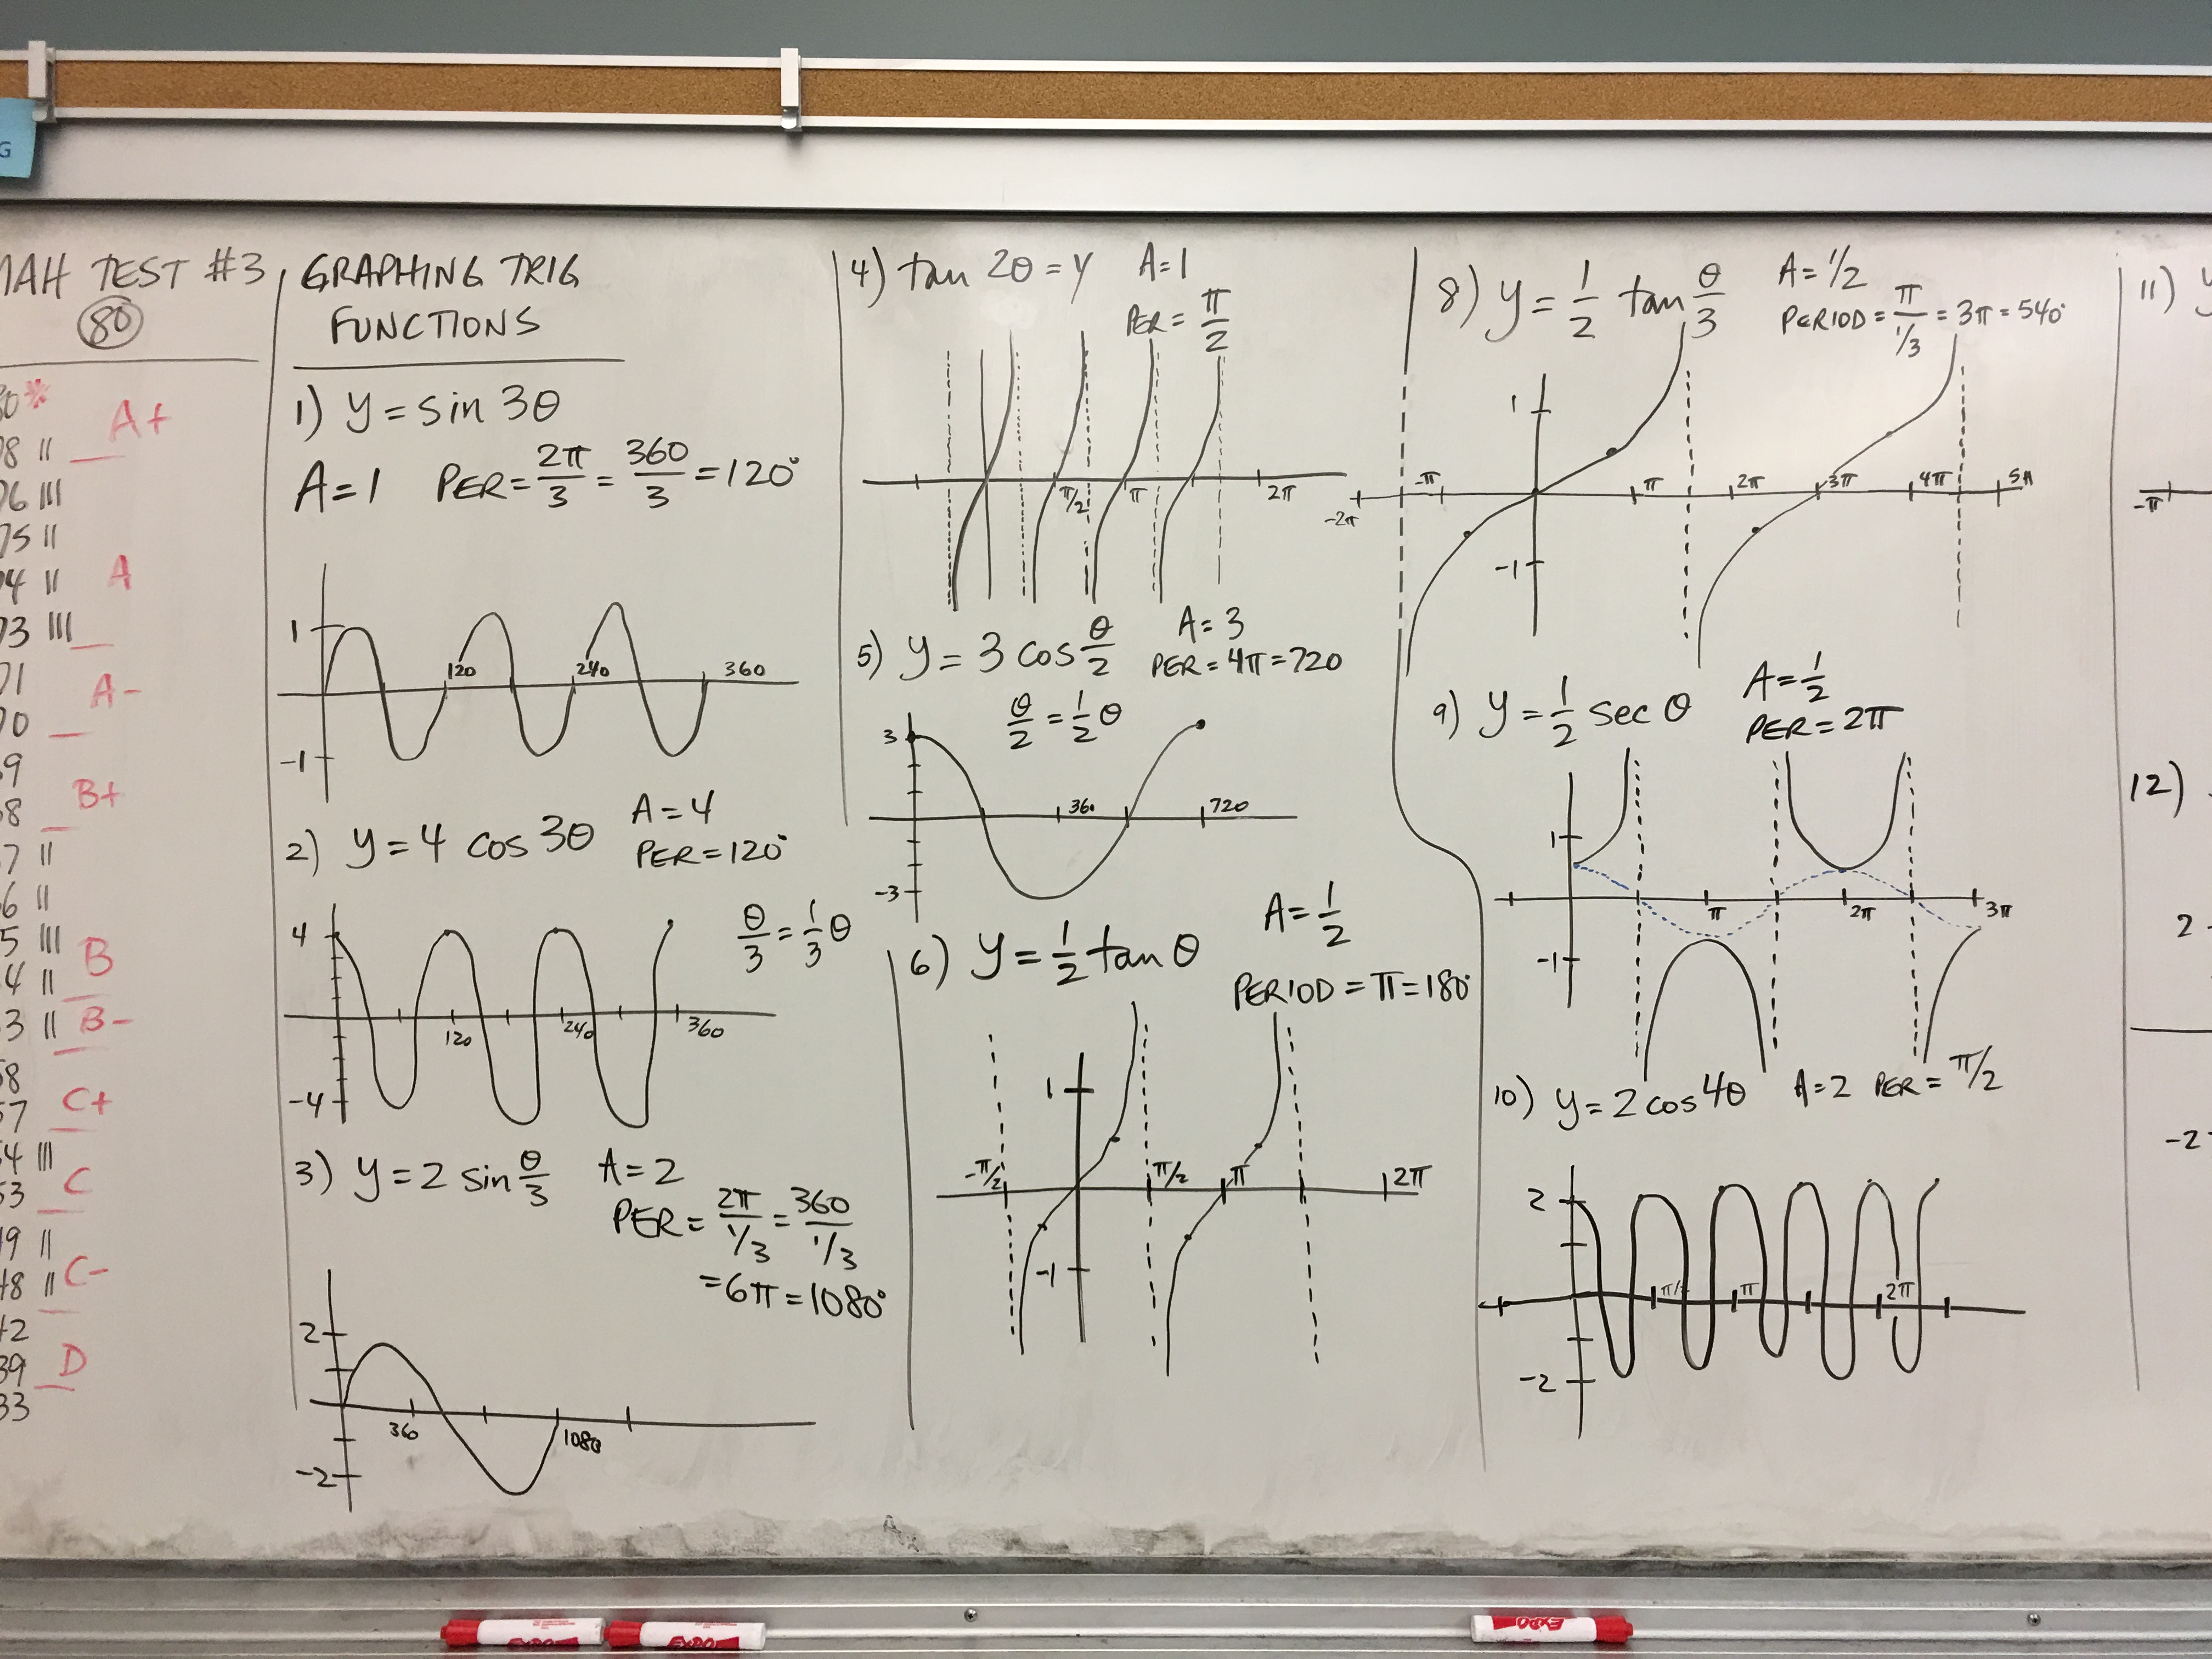 G
MAH TEST #3
80
80*
A+
78 ||
76 |||
75 ||
74 || A
73 |||
71
A-
70
69
B+
68
67 ||
66 ||
65 |||
B
64 ||
63 || B-
58
57 C+
54 |||
53 C
49 ||
48 || C-
42
39 D
33
GRAPHING TRIG
FUNCTIONS
1) y = sin 3θ
A = 1 PER = 2π/3 = 360/3 = 120°
1
120
240
360
-1
2) y = 4 cos 3θ
A = 4
PER = 120°
θ/3 = 1/3 θ
4
120
240
360
-4
3) y = 2 sin θ/3
A = 2
PER = 2π/1/3 = 360/1/3
= 6π = 1080°
2
360
1080
-2
4) tan 2θ = y A = 1
PER = π/2
π/2
π
2π
5) y = 3 cos θ/2
A = 3
PER = 4π = 720
θ/2 = 1/2 θ
3
360
720
-3
6) y = 1/2 tan θ
A = 1/2
PERIOD = π = 180°
1
-π/2
π/2
π
2π
-1
8) y = 1/2 tan θ/3
A = 1/2
PERIOD = π/1/3 = 3π = 540°
1
-2π
-π
π
2π
3π
4π
5π
-1
9) y = 1/2 sec θ
A = 1/2
PER = 2π
1
π
2π
3π
-1
10) y = 2 cos 4θ A = 2 PER = π/2
2
π/2
π
2π
-2
11) y
-π
12)
2
-2
EXPO
EXPO
EXPO